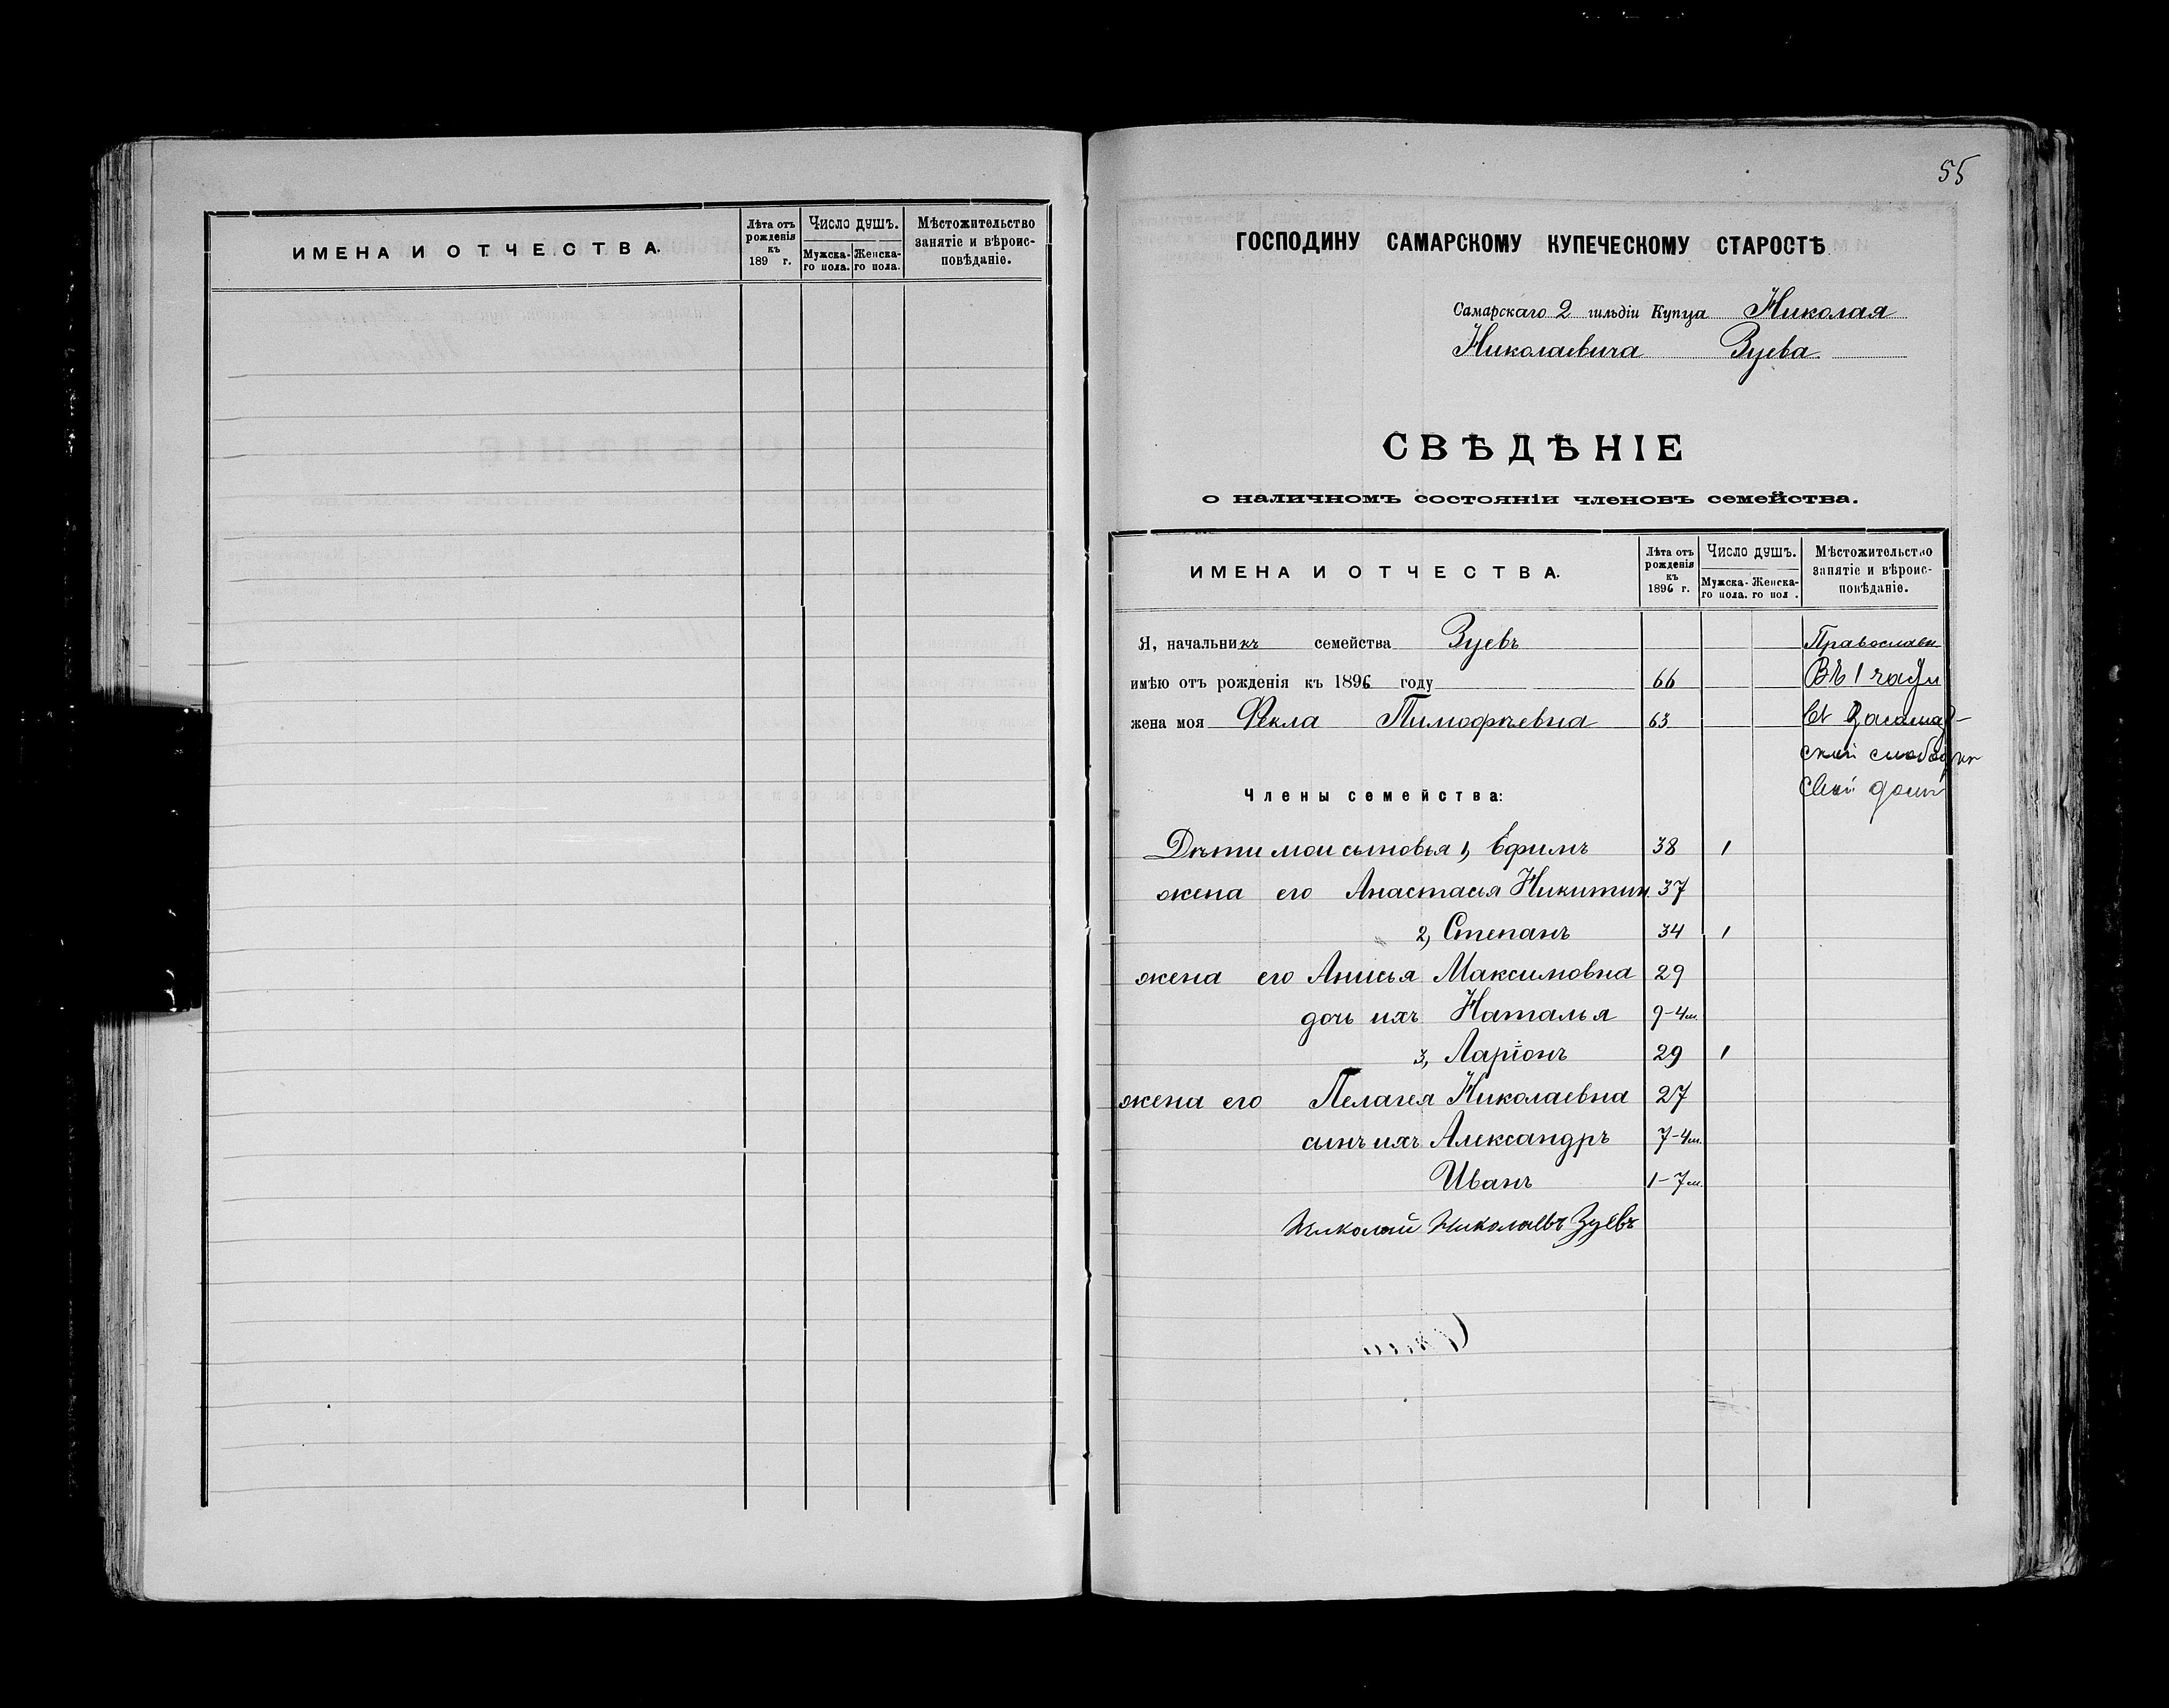 ИМЕНА И ОТЧЕСТВА.
Лѣта отъ рожденія къ 189 г.
Число душъ.
Мужска-го пола.
Женска-го пола.
Мѣстожительство занятіе и вѣроис-повѣданіе.
55
ГОСПОДИНУ САМАРСКОМУ КУПЕЧЕСКОМУ СТАРОСТѢ
Самарскаго 2 гильдіи Купца Николая
Николаевича Зуева.
СВѢДѢНІЕ
о наличномъ состояніи членовъ семейства.
ИМЕНА И ОТЧЕСТВА.
Лѣта отъ рожденія къ 1896 г.
Число душъ.
Мужска-го пола.
Женска-го пол .
Мѣстожительство занятіе и вѣроис-повѣданіе.
Я, начальникъ семейства Зуевъ Православн
имѣю отъ рожденія къ 1896 году 66 Въ 1 части
жена моя Фекла Тимофѣевна 63
слободки
Свой домъ
Члены семейства:
Дѣти мои сыновья 1, Ефимъ 38 1
жена его Анастасья Никитин. 37
2, Степанъ 34 1
жена его Анисья Максимовна 29
дочь ихъ Наталья 9-4м.
3, Ларіонъ 29 1
жена его Пелагея Николаевна 27
сынъ ихъ Александръ 7-4м.
Иванъ 1-7м.
Николай Николаевъ Зуевъ